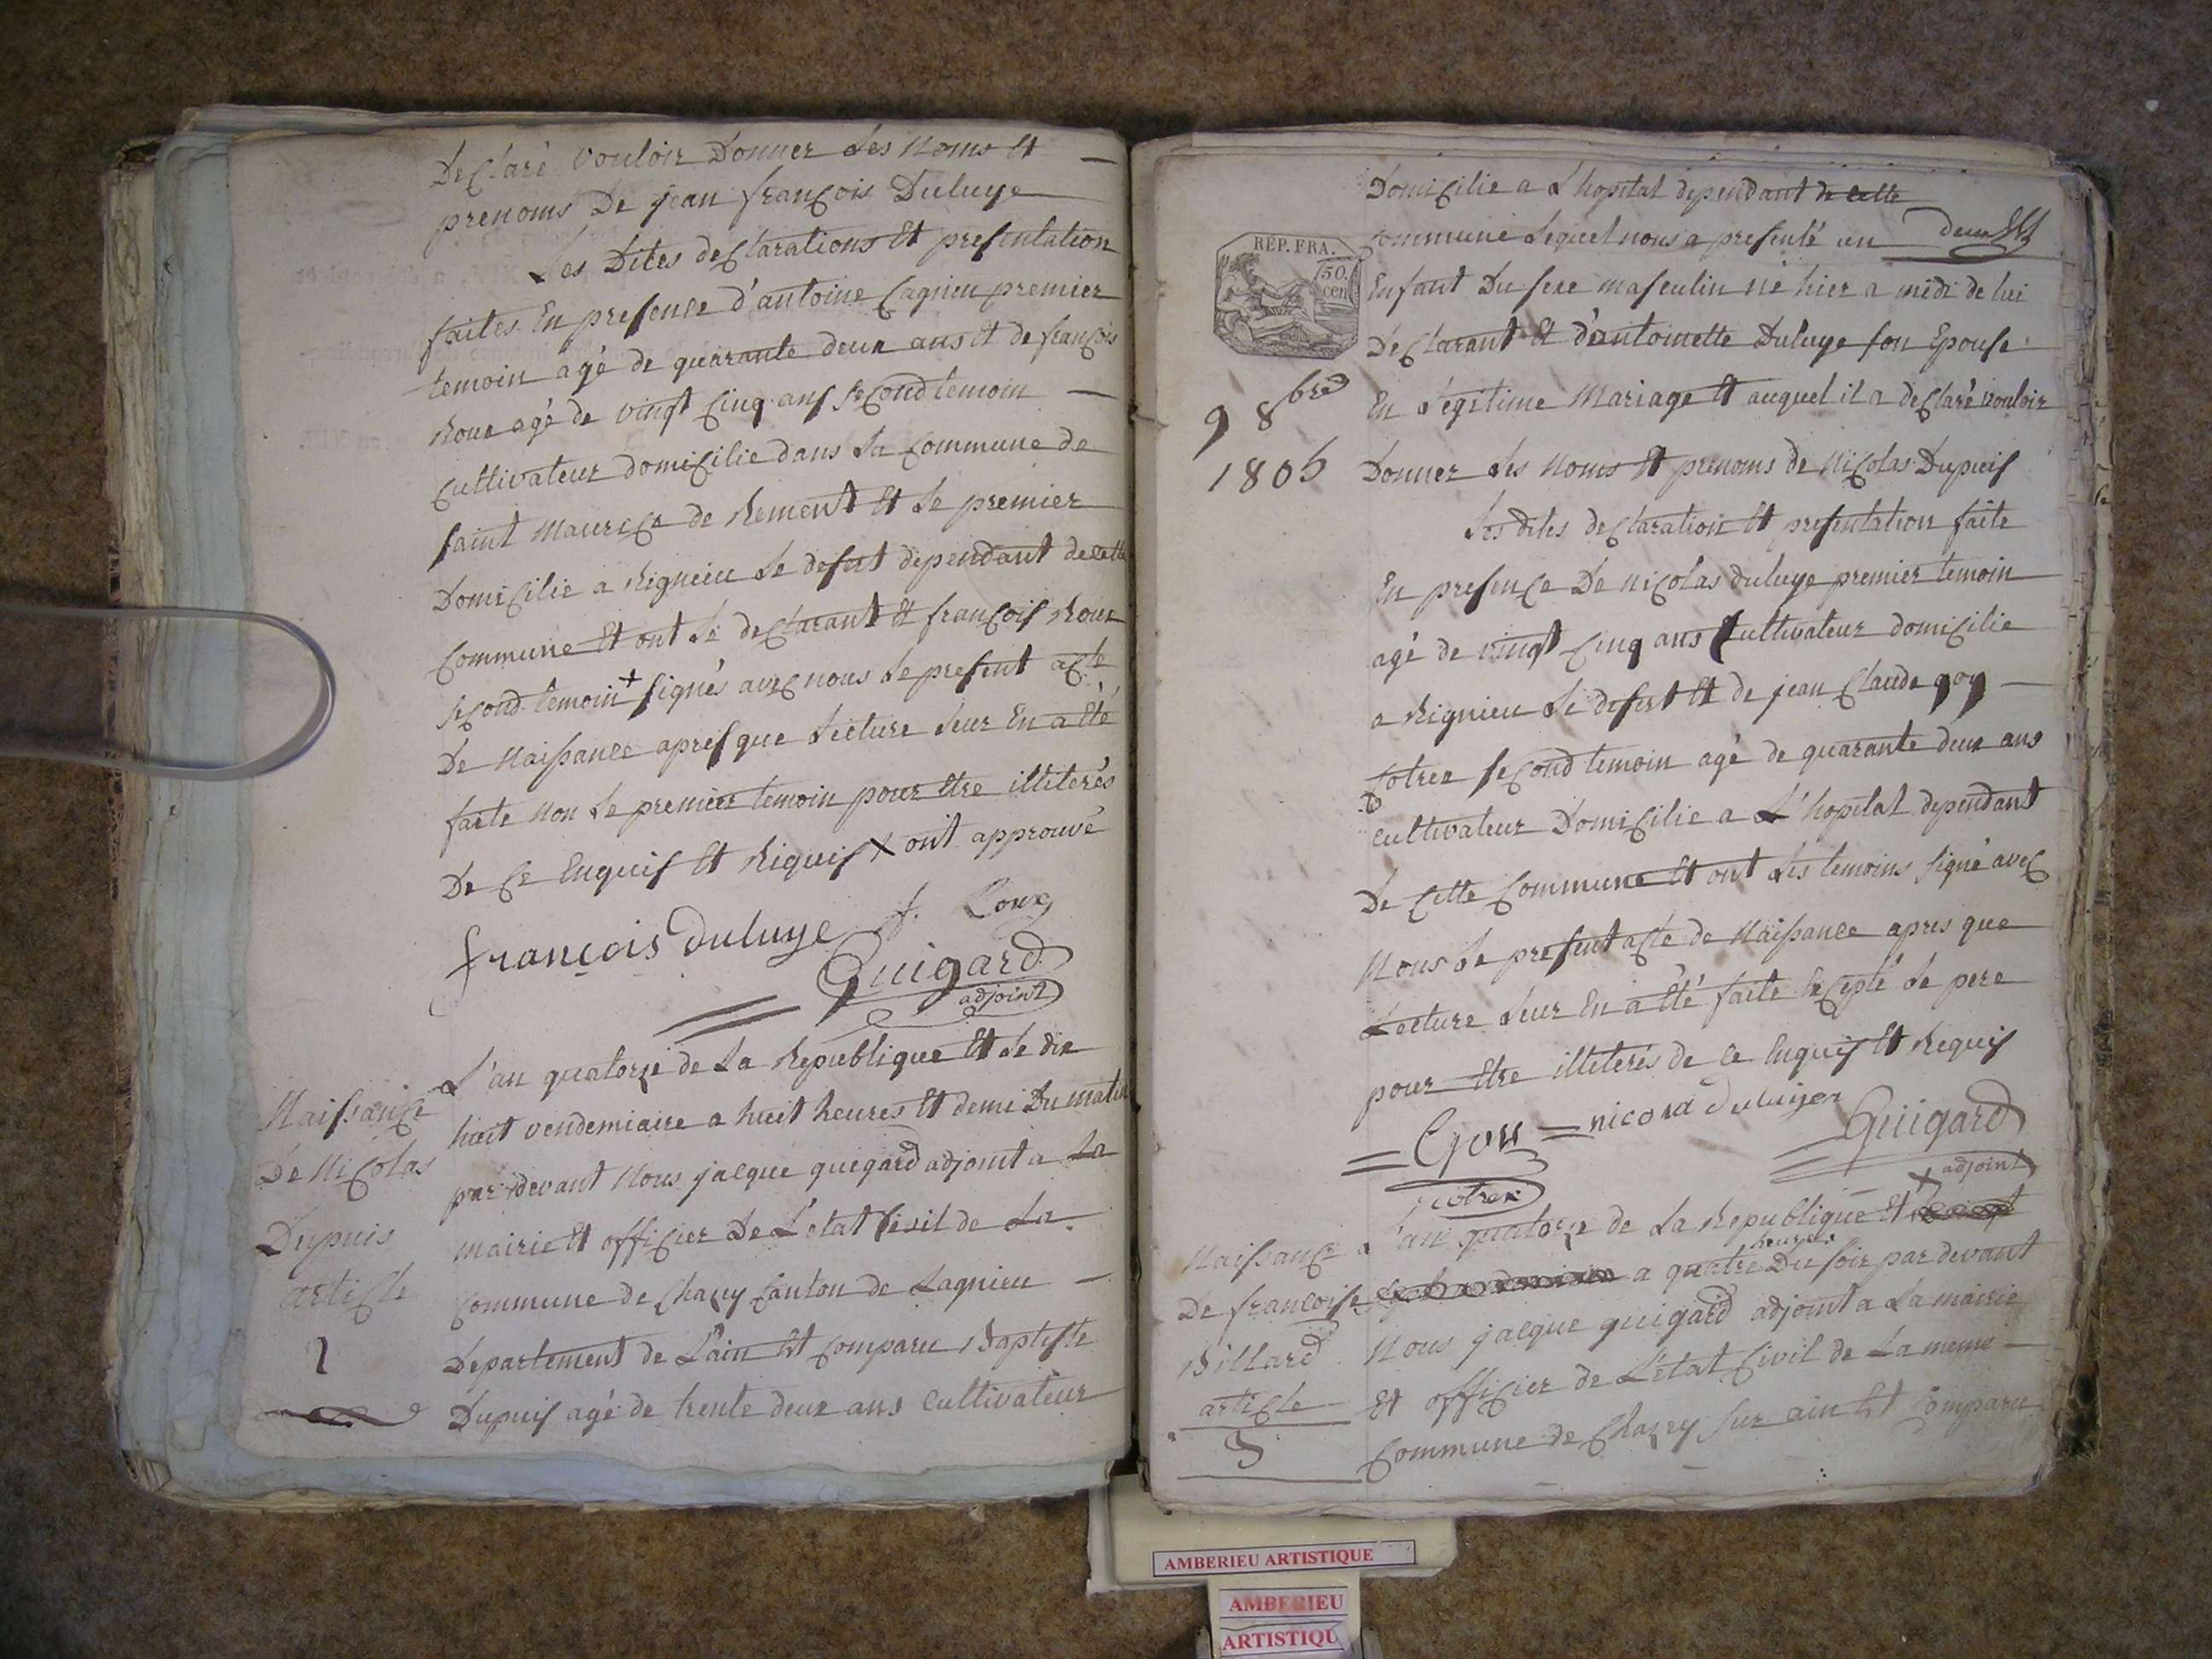 Declaré vouloir Donner Les Noms Et —
prenoms De jean françois Duluye
Les Dites declarations Et presentation
faites En presence d'antoine Cagnin premier
temoin agé de quarrante deux ans Et de françois
Roux agé de vingt Cinq ans second temoin —
Cultivateur domicilie dans La Commune de
saint Maurice de Rement Et Le premier
Domicilie a Rignieu Le desert dependant de cette
Commune Et ont Le declarant Et françois Roux
second temoin + signés avec nous Le present acte
De Naissance apres que Lecture Leur En a Eté
faite Non Le premier temoin pour Etre illiterés
De Ce Enquis Et Requis X ont approuvé
françois duluye f. Roux
Guigard
adjoint
Naissance
De Nicolas
Dupuis
article
2
L'an quatorze de La Republique Et Le dix
huit vendemiaire a huit heures Et demi Du matin
par devant Nous jacque guigard adjoint a La
mairie Et officier De L'etat Civil de La
Commune de Chazey Canton de Lagnieu —
Departement de L'ain Est Comparu Baptiste
Dupuis agé de trente deux ans Cultivateur
Domicilie a L'hopital dependant de cette
Commune Lequel nous a presenté un
deux
REP. FRA.
50.
cen
Enfant Du sexe masculin né hier a midi de lui
Declarant Et d'antoinette Duluye son Epouse
9 8bre
1805
En Légitime Mariage Et auquel il a declaré vouloir
Donner Les Noms Et prenoms de Nicolas Dupuis
Les dites declaration Et presentation faite
En presence De Nicolas duluye premier temoin
agé de vingt Cinq ans Cultivateur domicilie
a Rignieu Le desert Et de jean Claude goy —
Cotrex second temoin agé de quarante deux ans
cultivateur Domicilie a L'hopital dependant
De Cette Commune Et ont Les temoins signé avec
Nous Le present acte de Naissance apres que
Lecture Leur En a Eté faite Excepté Le pere
pour Etre illiterés de ce Enquis Et Requis
= Goy =
Cotrex
Guigard
adjoint
Naissance
De françoise
Billard
article
3
L'an quatorze de La Republique Et X
a quatre heures Du soir par devant
Nous jacque guigard adjoint a La mairie
Et officier de L'etat Civil de La meme —
Commune de Chazey sur ain Est Comparu
AMBERIEU ARTISTIQUE
AMBERIEU
ARTISTIQU